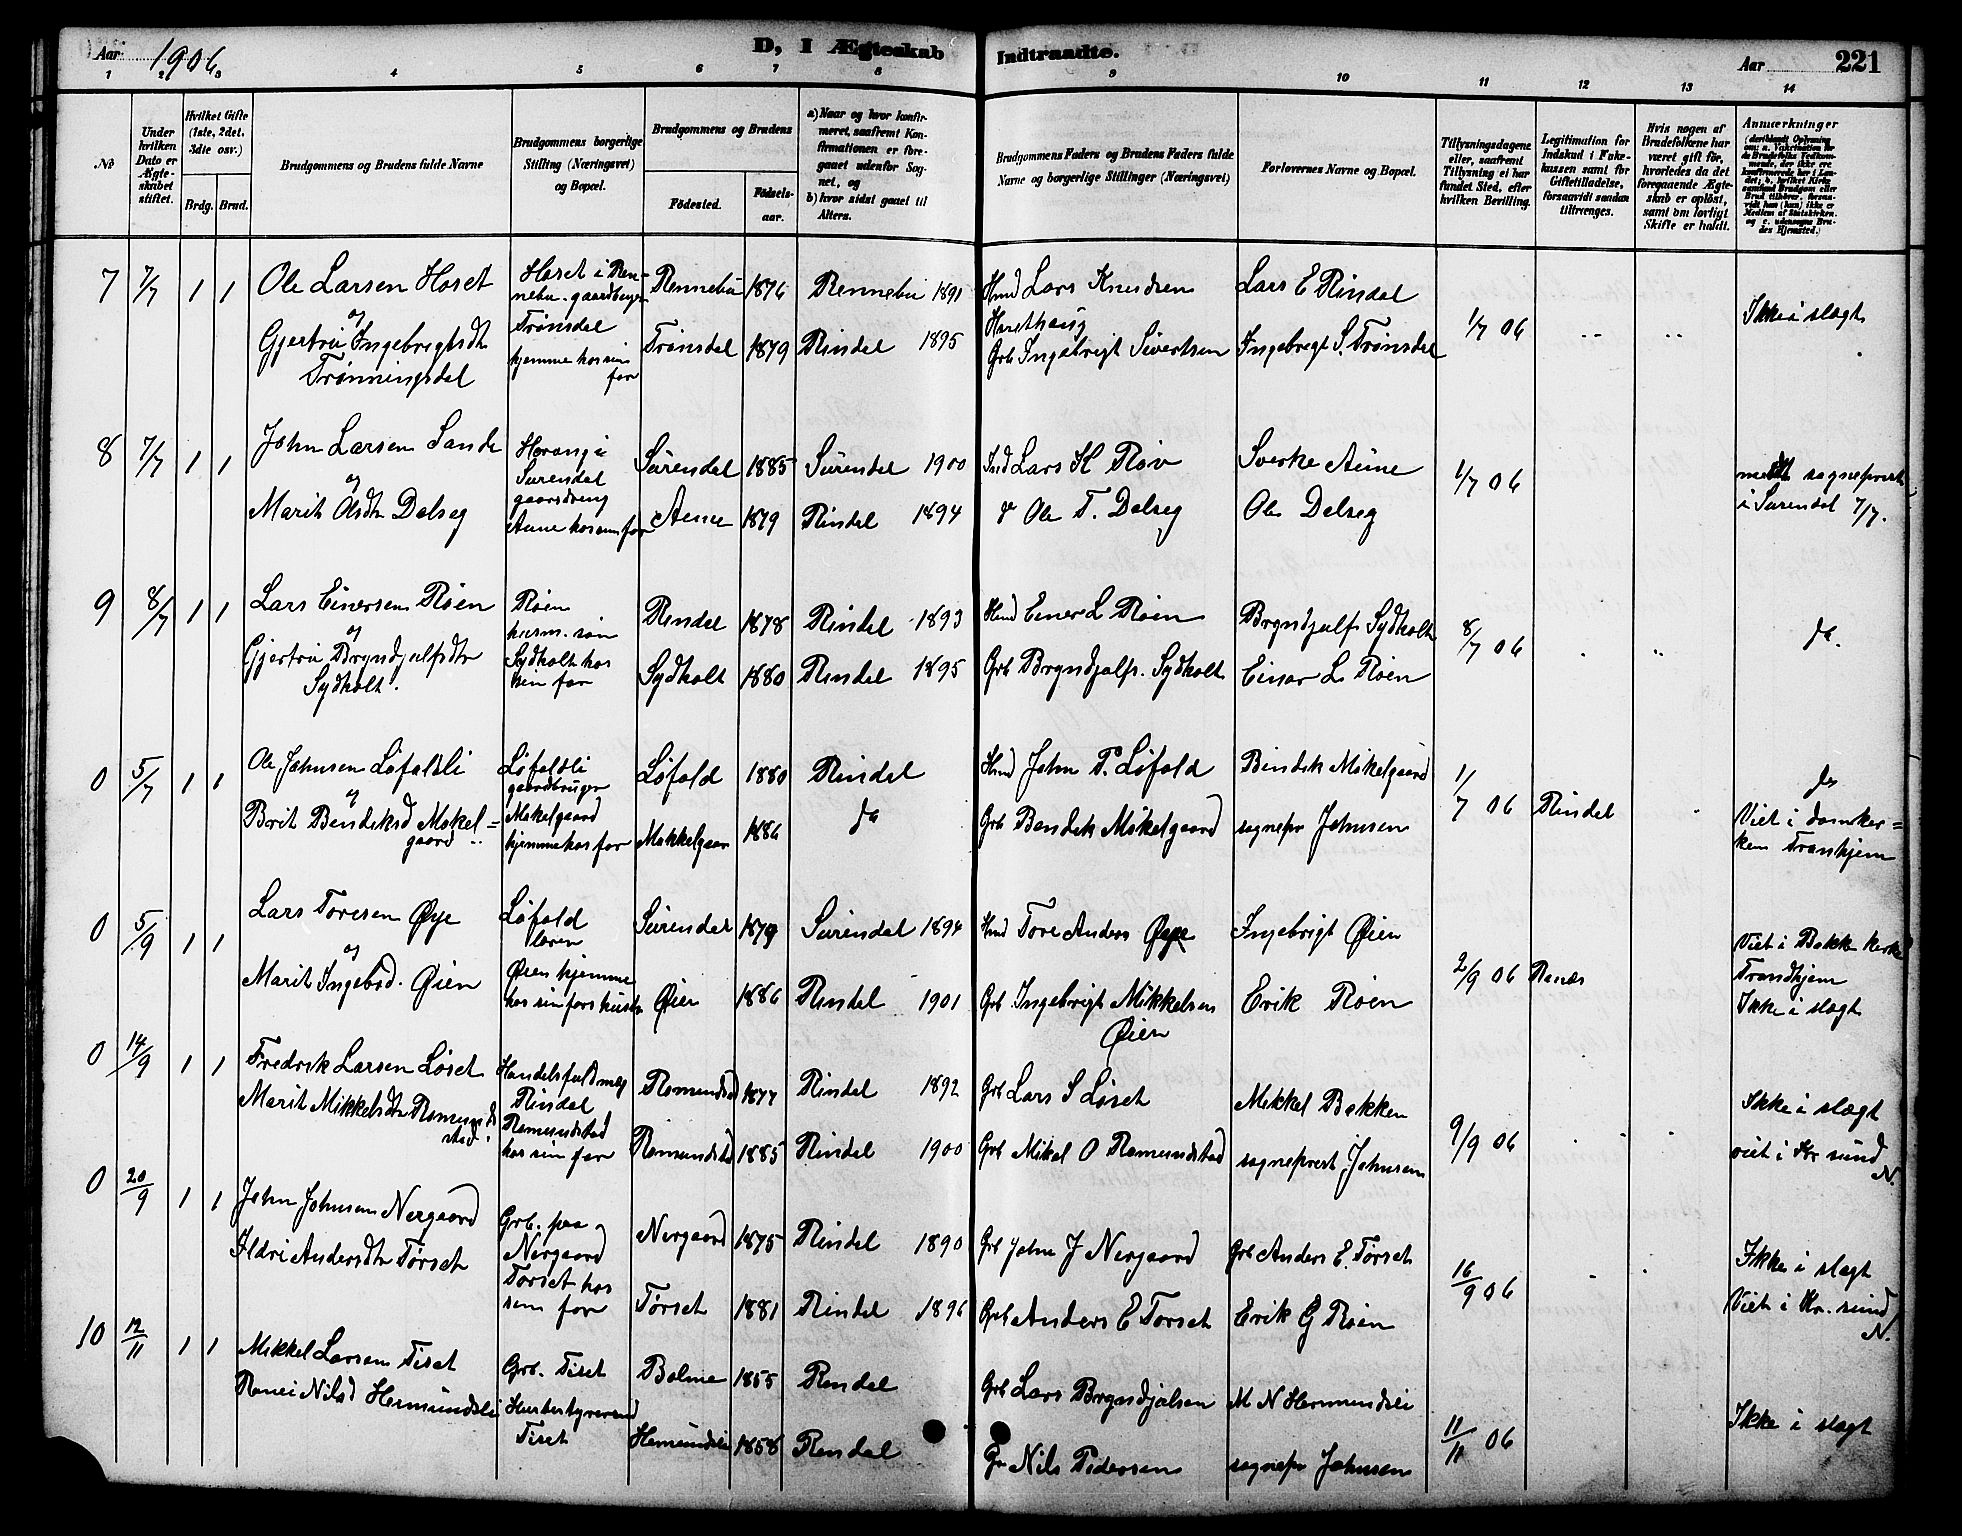 Aar 1906
D, I Ægteskab Indtraadte.
Aar 221
1 2 3 4 5 6 7 8 9 10 11 12 13 14
No
Under hvilken Dato er Ægteskabet stiftet.
Hvilket Gifte (1ste, 2det, 3die osv.)
Brdg. Brud.
Brudgommens og Brudens fulde Navne
Brudgommens borgerlige Stilling (Næringsvei) og Bopæl.
Brudgommens og Brudens
Fødested. Fødselsaar.
a) Naar og hvor konfirmeret, saafremt Konfirmationen er foregaaet udenfor Sognet, og
b) hvor sidst gaaet til Alters.
Brudgommens Faders og Brudens Faders fulde Navne og borgerlige Stillinger (Næringsvei)
Forlovernes Navne og Bopæl.
Tillysningsdagene eller, saafremt Tillysning ei har fundet Sted, efter hvilken Bevilling.
Legitimation for Indskud i Enkekassen samt for Giftetilladelse, forsaavidt saadan tiltrænges.
Hvis nogen af Brudefolkene har været gift før, hvorledes da det foregaaende Ægteskab er opløst, samt om lovligt Skifte er holdt.
Anmærkninger
7 7/7 1 1 Ole Larsen Hoset Hoset i Rennebu. gaardbruger Rennebu 1876 Rennebu 1891 Hmd Lars Knudsen Lars E Rindal
og
Gjertru Ingebrigtsdtr Trønningsdal Trønsdal hjemme hos sin far Trønsdal 1879 Rindal 1895 Grb Ingebrigt Sivertsen Ingebrigt S. Trønsdal 1/7 06 Ikke i slægt
8 7/7 1 1 John Larsen Sande Surendal gaardsdreng Surendal 1885 Surendal 1900 Lars H Røv Sverke Aune
og
Marit Olsdtr Dalseg Aune hos sin far Aune 1879 Rindal 1894 Ole T. Dalseg Ole Dalseg 1/7 06 sogneprest i Surendal 7/7.
9 8/7 1 1 Lars Einersen Røen Røen husm. søn Rindal 1878 Rindal 1893 Hmd Einer L Røen Bryndjulf Sydholt
og
Gjertru Bryndjulfsdtr Sydholt. Sydholt hos sin far Sydholt 1880 Rindal 1895 Grb Bryndjulf. Sydholt Einar L Røen 8/7 06 do.
0 5/7 1 1 Ole Johnsen Løfaldli Løfaldli gaardbruger Løfald 1880 Rindal Hmd John P. Løfald Bendik Mokelgaard
og
Brit Bendiksd Mokelgaard Mokelgaard hjemme hos far Mokkelgaar 1886 do Grb Bendik Mokelgaard sognepr Johnsen 1/7 06 Rindal do
Viet i domkerken Tronhjem
0 5/9 1 1 Lars Toresen Øye Løfald Surendal 1879 Surendal 1894 Hmd Tore Anders Øye Ingebrigt Øien
og
Marit Ingebd. Øien Øien hjemme hos sin fars Øien 1886 Rindal 1901 Grb Ingebrigt Mikkelsen Øien Erik Røen 2/9 06 Ranes
Viet i Bakke kirke Trondhjem
Ikke i slægt
0 14/9 1 1 Fredrik Larsen Løset Handelsfuldmæg Rindal Romundstad 1877 Rindal 1892 Grb Lars S Løset Mikkel Bakken
Marit Mikkelsdtr Romundstad. Romundstad hos sin far Romundstad 1885 Rindal 1900 Grb Mikel O Romundstad sogneprest Johnsen 9/9 06
Ikke i slægt
viet i Kr sund N.
0 20/9 1 1 John Johnsen Nergaard Grb. paa Nergaard Nergaard 1875 Rindal 1890 Grb John J Nergaard Grb Anders E. Tørset
Ildri Andersdtr Tørset Torset hos sin far Tørset 1881 Rindal 1896 Grb Anders E Torset Erik G Røen 16/9 06
Ikke i slægt
Viet i Kr. sund N.
10 12/11 1 1 Mikkel Larsen Tiset Grb. Tiset Bolme 1855 Rindal Grb Lars Bryndjulsen M N Hermundsli
Ranei Nilsd Hermundsli Tiset Hermundsli 1858 Rindal Gr Nils Pedersen sognepr Johnsen 11/11 06 Ikke i slægt